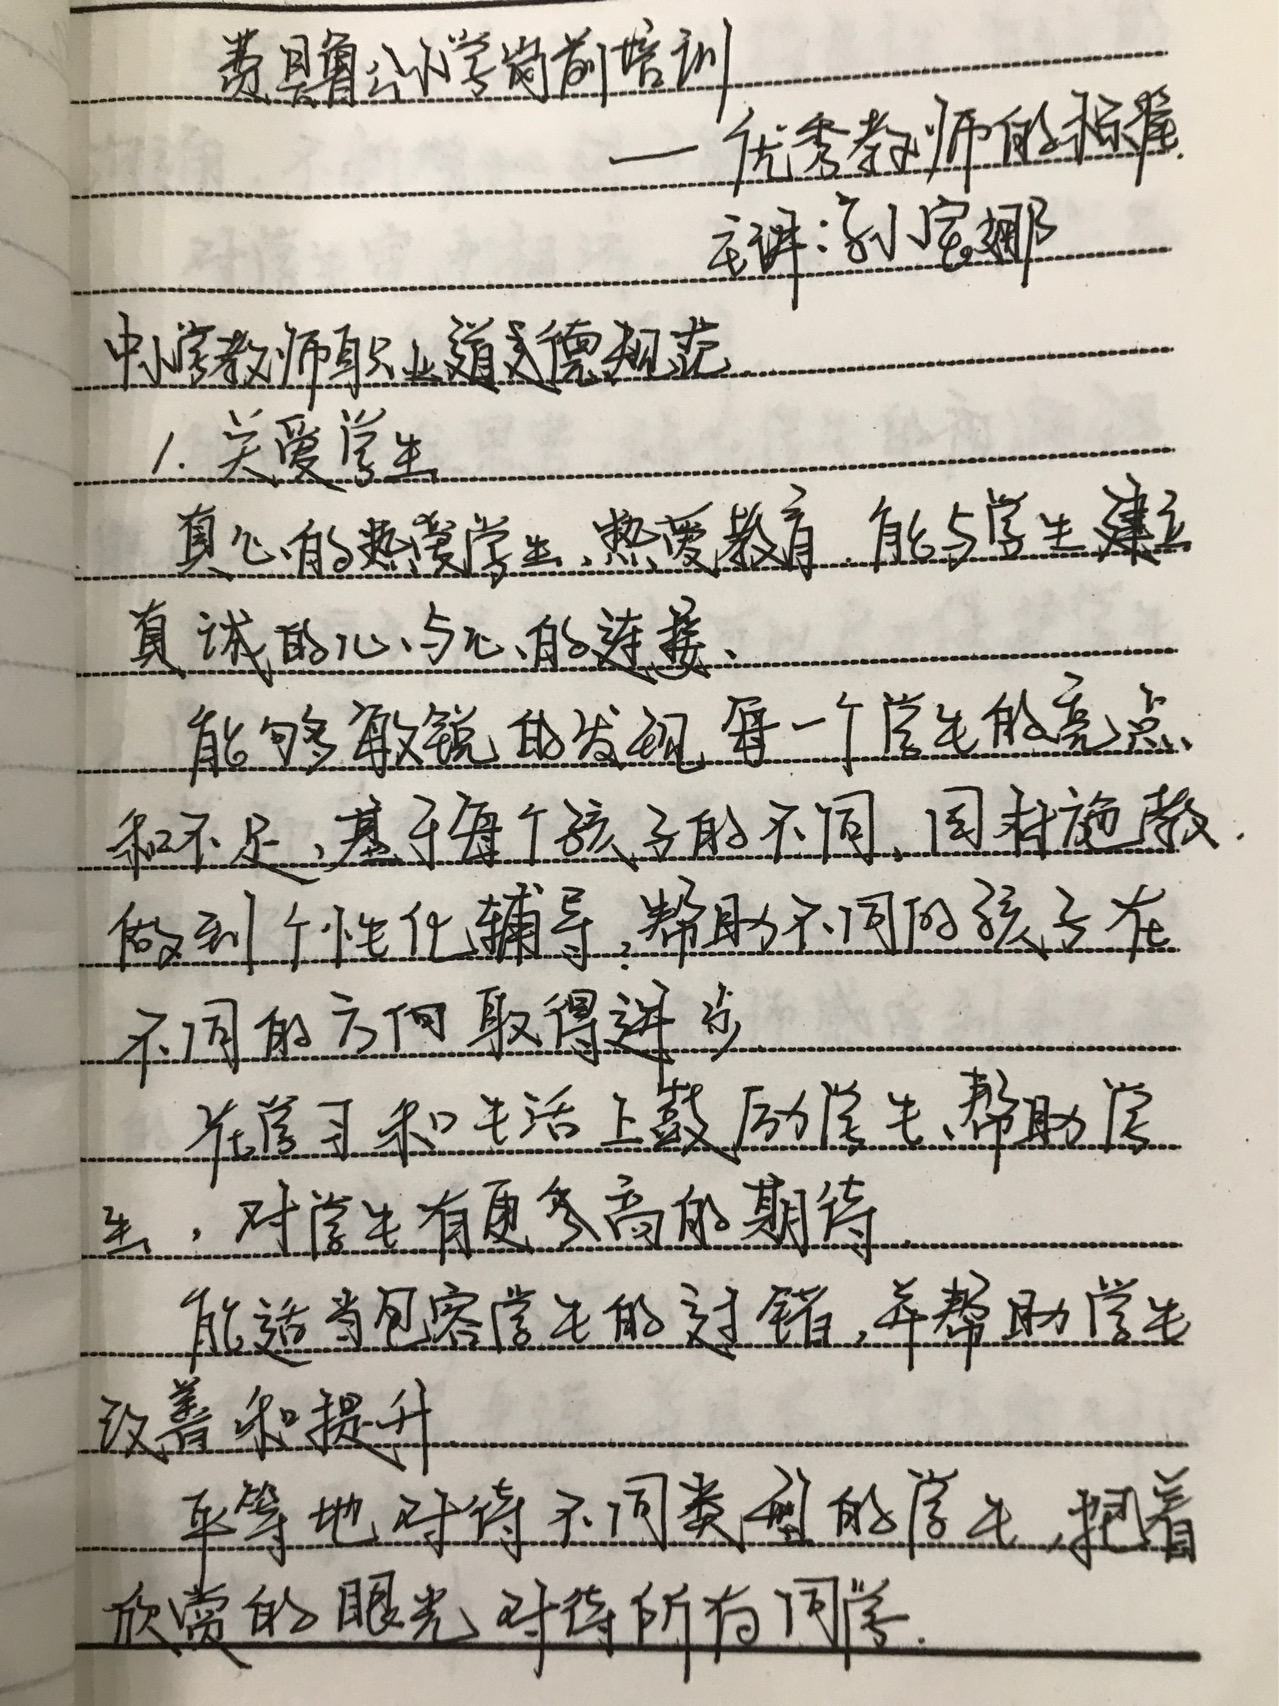 费县鲁公小学岗前培训
—优秀教师的标准.
主讲:孙宝娜
中小学教师职业道德规范
1.关爱学生
真心的热爱学生、热爱教育.能与学生建立
真诚的心与心的连接、
能够敏锐的发现每一个学生的亮点
和不足,基于每个孩子的不同,因材施教.
做到个性化辅导,帮助不同的孩子在
不同的方向取得进步
在学习和生活上鼓励学生、帮助学
生,对学生有更多高的期待.
能适当包容学生的过错,并帮助学生
改善和提升
平等地对待不同类型的学生,抱着
欣赏的眼光对待所有同学.